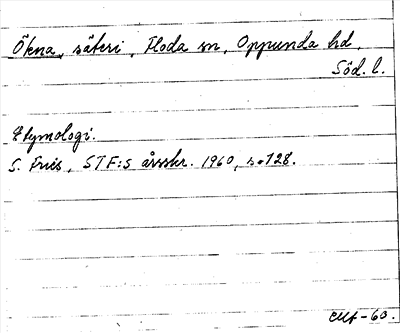 Ökna, säteri, Floda sn, Oppunda hd,
Söd. l.
Etymologi.
S. Fries, STF:s årsskr. 1960, s. 128.
-60.